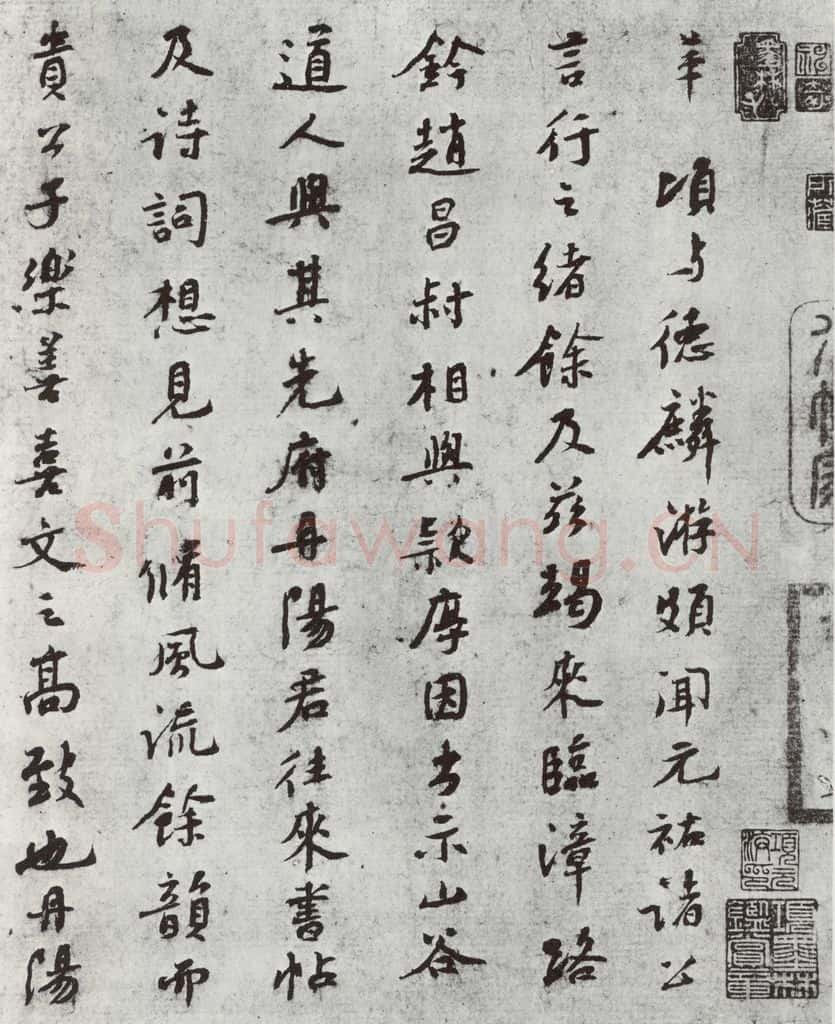 頃与德麟游頗聞元祐諸公
言行之緒餘及茲朅來臨漳路
鈐趙昌相與款厚因出示山谷
道人與其先府丹陽君往來書帖
及詩詞想見前脩風流餘韻而
貴公子樂善喜文之高致也丹陽
Shufawang.CN